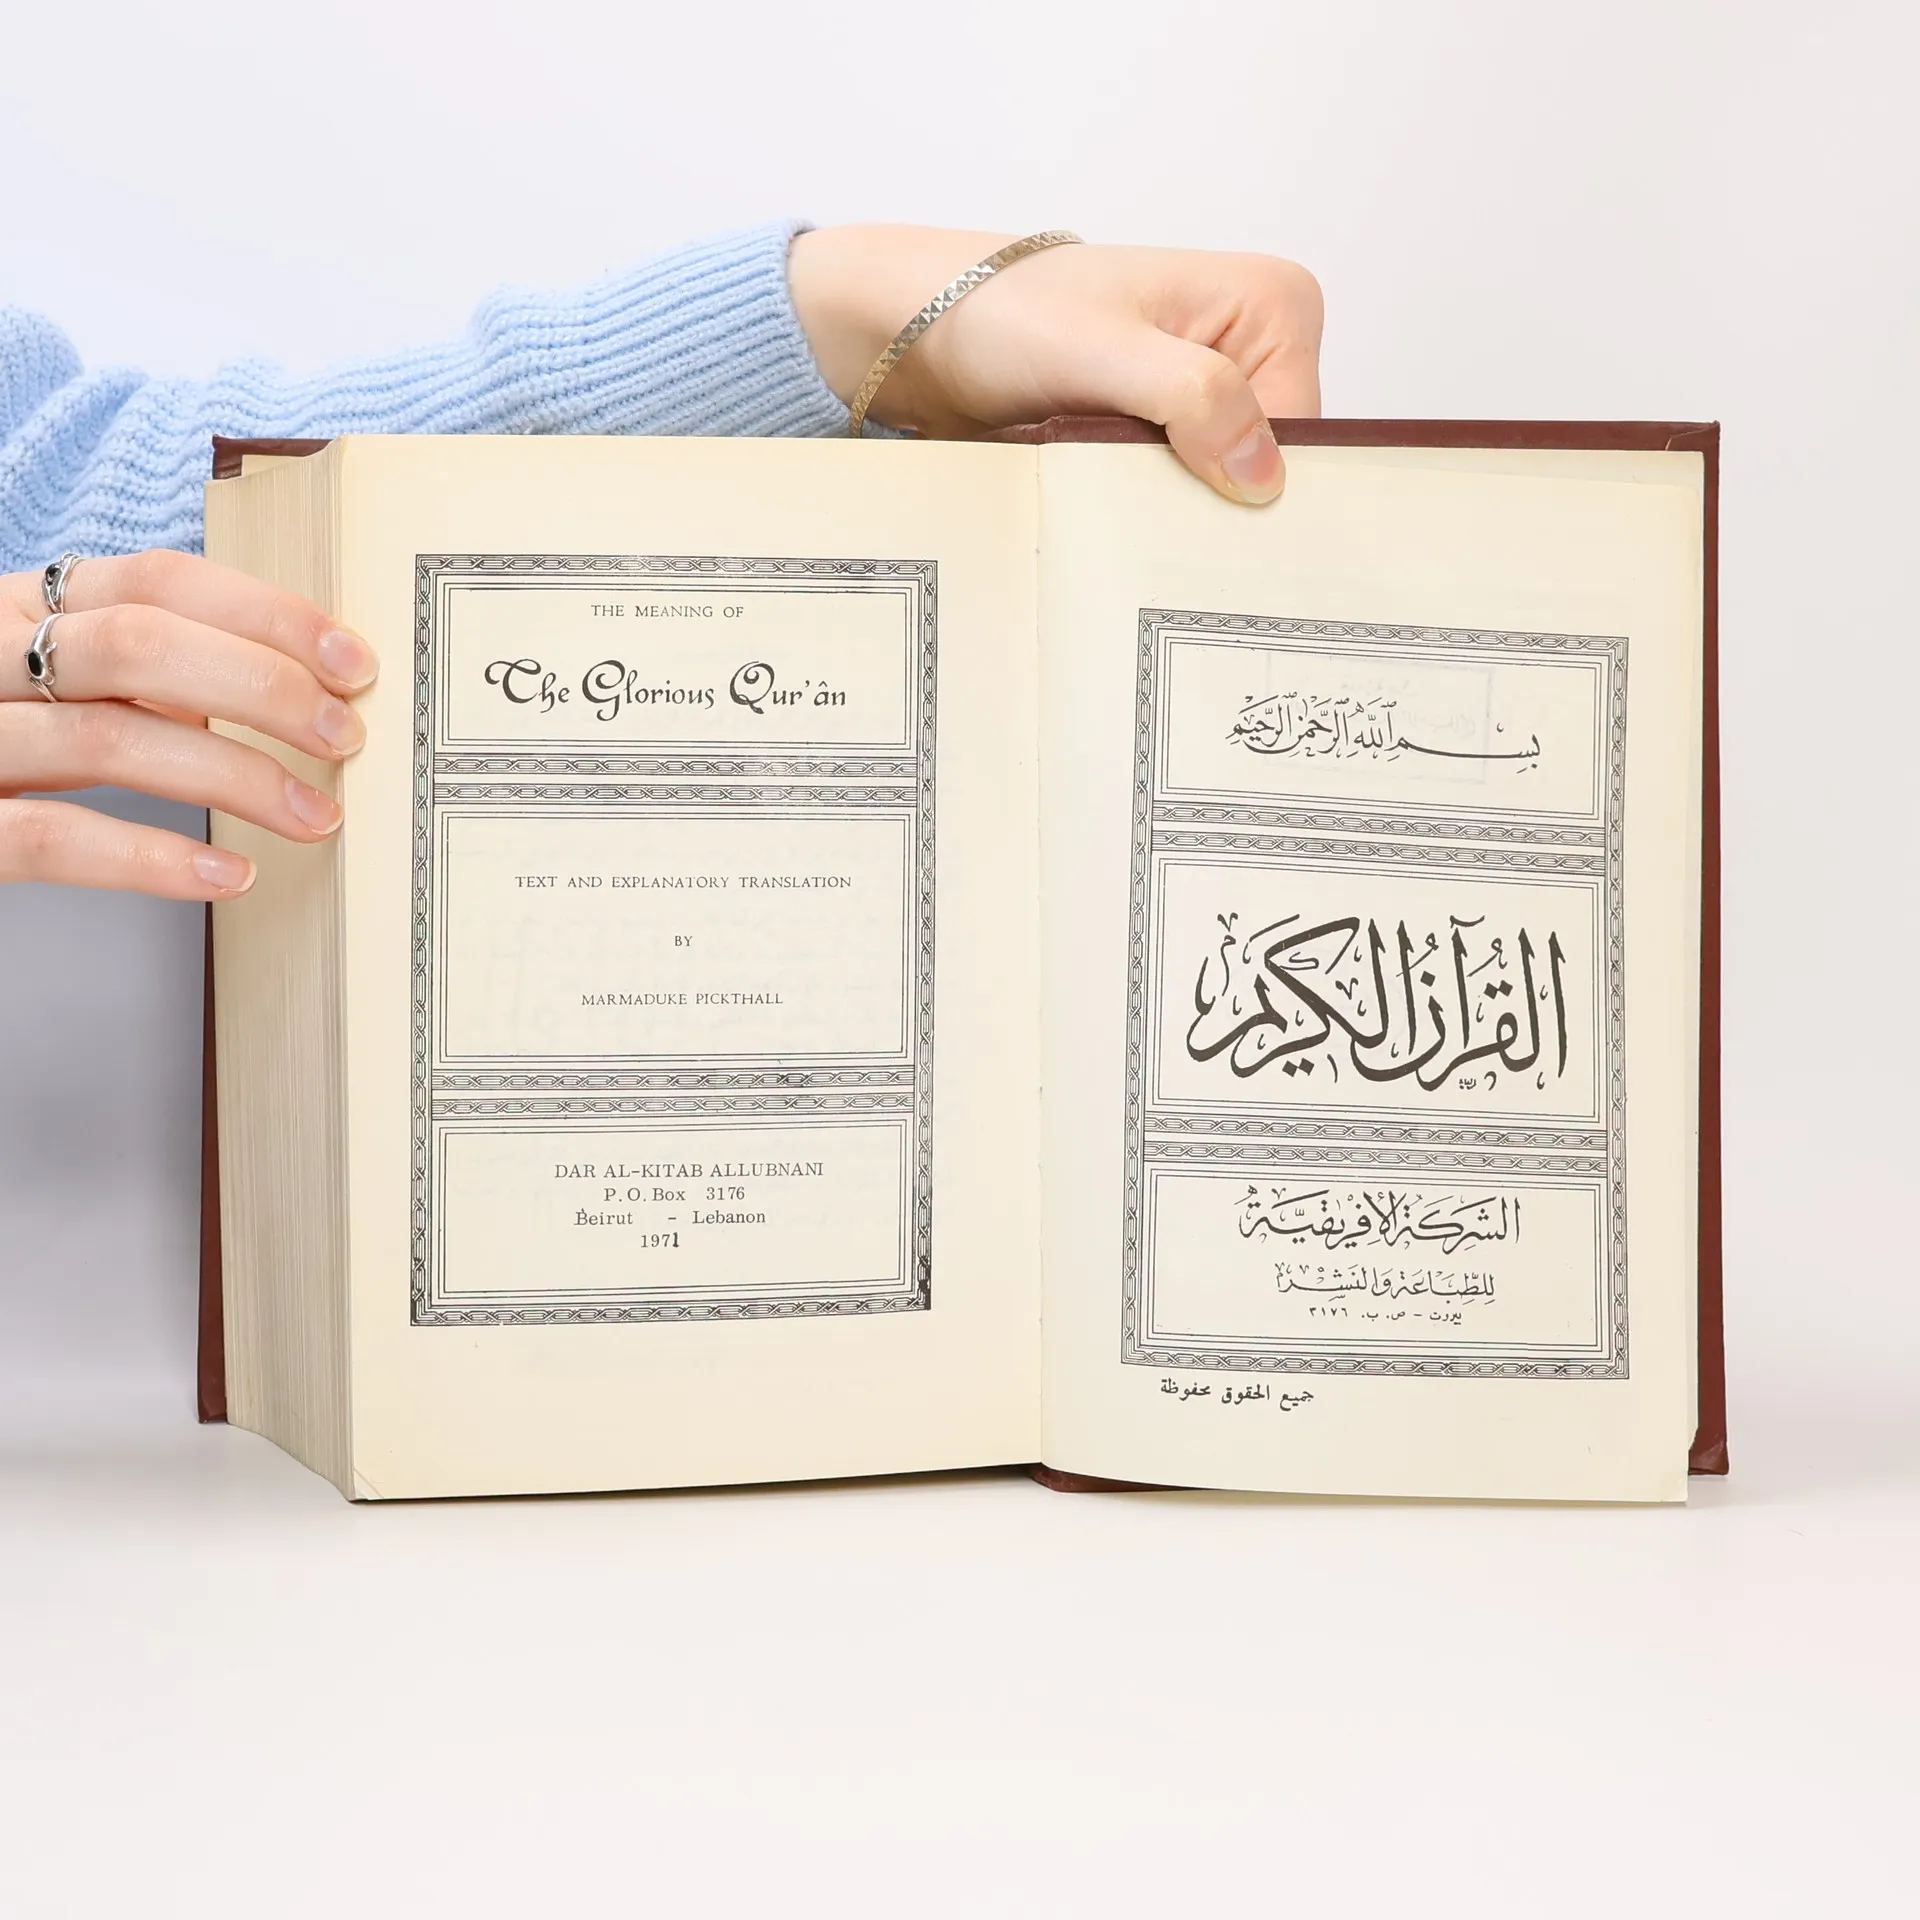 THE MEANING OF
The Glorious Qur'ân
TEXT AND EXPLANATORY TRANSLATION
BY
MARMADUKE PICKTHALL
DAR AL-KITAB ALLUBNANI
P.O. Box 3176
Beirut - Lebanon
1971
بِسْمِ ٱللَّهِ ٱلرَّحْمَٰنِ ٱلرَّحِيمِ
القُرْآن الكَرِيم
الشَّرِكَةُ الأَفْرِيقِيَّةُ
لِلطِّبَاعَةِ وَالنَّشْرِ
بيروت - ص. ب. ٣١٧٦
جميع الحقوق محفوظة